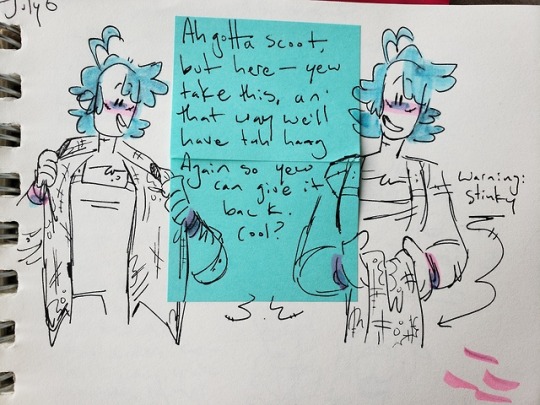 July 6
Ah gotta scoot,
but here — yew
take this, an'
that way we'll
have tah hang
Again so yew
can give it
back.
Cool?
warning:
stinky